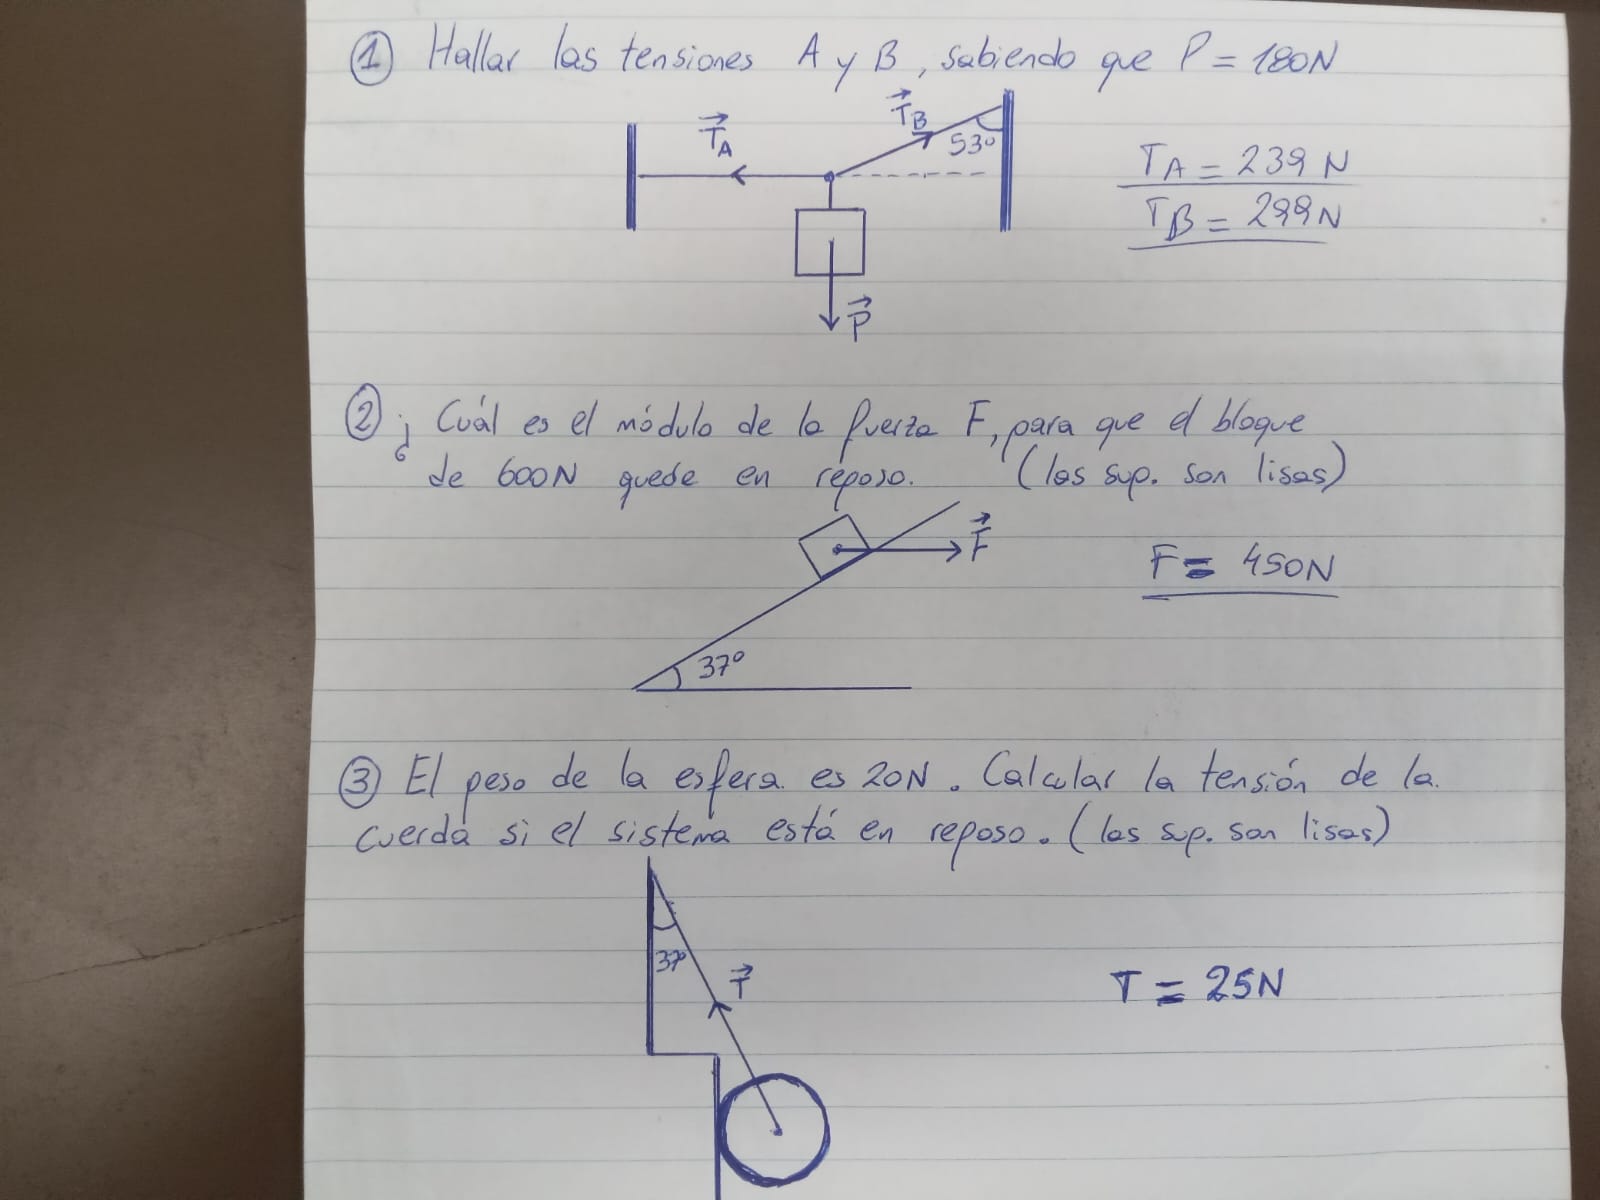 ① Hallar las tensiones A y B, sabiendo que P = 180N
T⃗A
T⃗B
53°
P⃗
TA = 239 N
TB = 299 N
② ¿ Cuál es el módulo de la fuerza F, para que el bloque
de 600N quede en reposo. (las sup. son lisas)
F⃗
37°
F = 450N
③ El peso de la esfera es 20N. Calcular la tensión de la
cuerda si el sistema está en reposo. (las sup. son lisas)
37°
T⃗
T = 25N